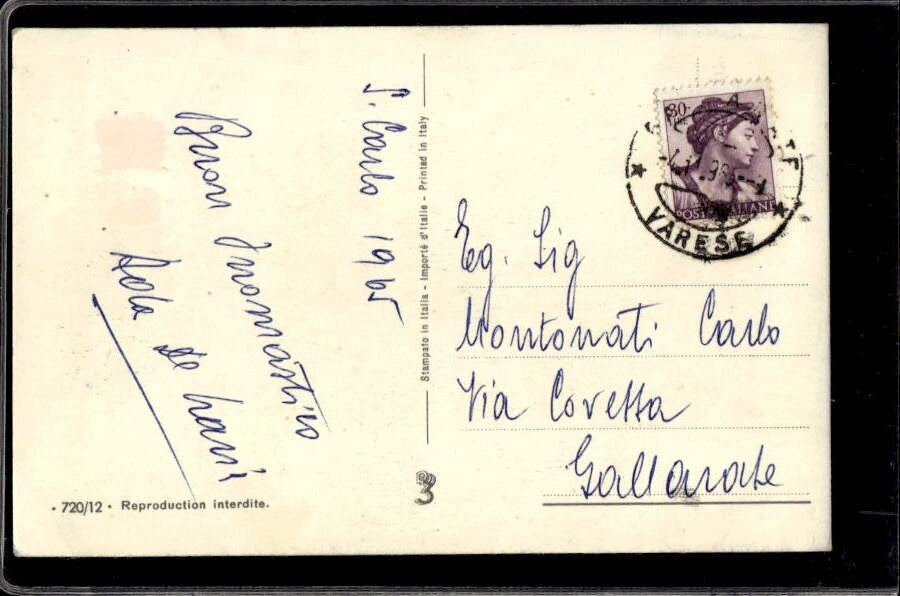 S. Carlo 1965
Buon Onomastico
Ada
De
Stampato in Italia - Importé d'Italie - Printed in Italy
Eg. Sig
Montonati Carlo
Via Covetta
Gallarate
80
POSTE ITALIANE
VARESE
3
• 720/12 • Reproduction interdite.